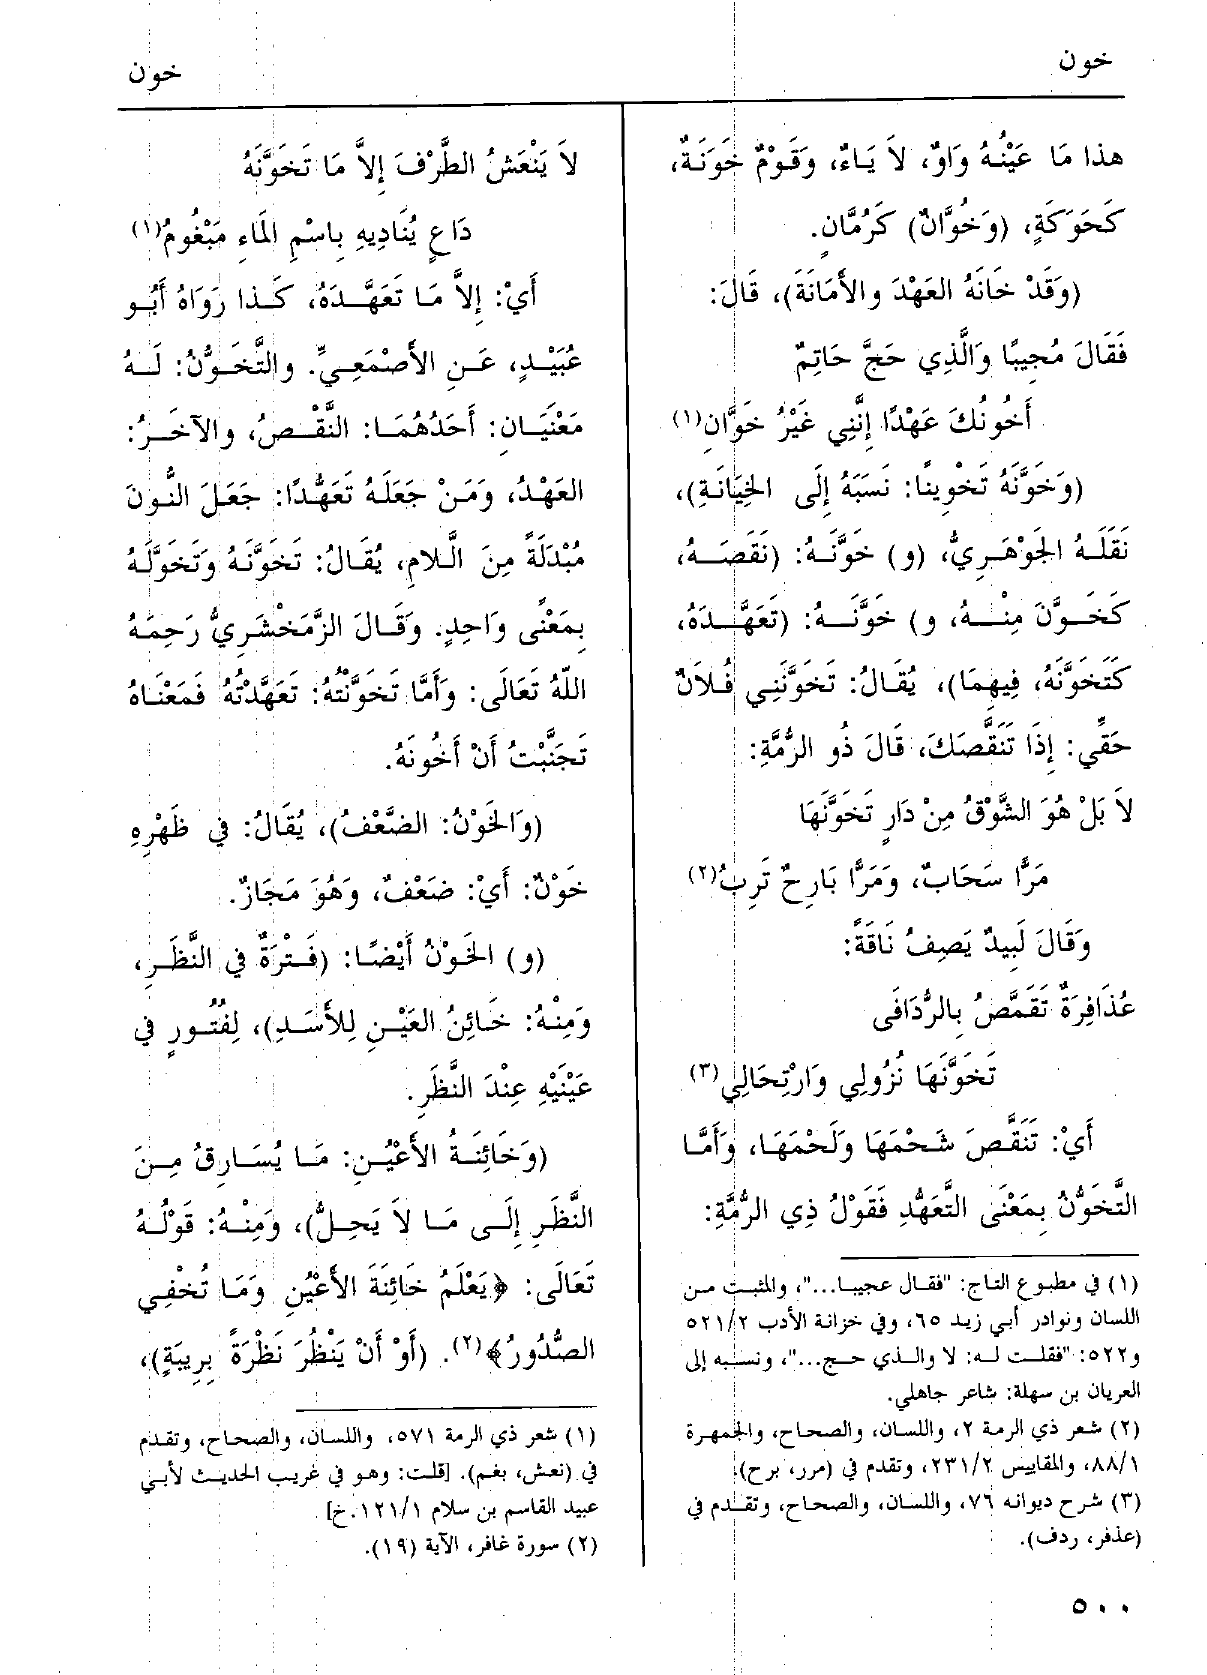 خون
خون
هذا مَا عَيْنُهُ وَاوٌ، لاَ يَاءٌ، وَقَوْمٌ خَوَنَةٌ،
كَحَوَكَةٍ، (وَخُوَّانٌ) كَرُمَّانٍ.
(وَقَدْ خَانَهُ العَهْدَ والأَمَانَةَ)، قَالَ:
فَقَالَ مُجِيبًا وَالَّذِي حَجَّ حَاتِمٌ
أَخُونُكَ عَهْدًا إِنَّنِي غَيْرُ خَوَّانِ(١)
(وَخَوَّنَهُ تَخْوِينًا: نَسَبَهُ إِلَى الخِيَانَةِ)،
نَقَلَهُ الجَوْهَرِيُّ، (و) خَوَّنَهُ: (نَقَصَهُ،
كَخَوَّنَ مِنْهُ، و) خَوَّنَهُ: (تَعَهَّدَهُ،
كَتَخَوَّنَهُ، فِيهِمَا)، يُقَالُ: تَخَوَّنَنِي فُلاَنٌ
حَقِّي: إِذَا تَنَقَّصَكَ، قَالَ ذُو الرُّمَّةِ:
لاَ بَلْ هُوَ الشَّوْقُ مِنْ دَارٍ تَخَوَّنَهَا
مَرًّا سَحَابٌ، وَمَرًّا بَارِحٌ تَرِبُ(٢)
وَقَالَ لَبِيدٌ يَصِفُ نَاقَةً:
عُذَافِرَةٌ تَقَمَّصُ بِالرُّدَافَى
تَخَوَّنَهَا نُزُولِي وَارْتِحَالِي(٣)
أَيْ: تَنَقَّصَ شَحْمَهَا وَلَحْمَهَا، وَأَمَّا
التَّخَوُّنُ بِمَعْنَى التَّعَهُّدِ فَقَوْلُ ذِي الرُّمَّةِ:
(١) في مطبوع التاج: "فقال عجيبا..."، والمثبت من
اللسان ونوادر أبي زيد ٦٥، وفي خزانة الأدب ٥٢١/٢
و٥٢٢: "فقلت له: لا والذي حج..."، ونسبه إلى
العريان بن سهلة: شاعر جاهلي.
(٢) شعر ذي الرمة ٢، واللسان، والصحاح، والجمهرة
٨٨/١، والمقاييس ٢٣١/٢، وتقدم في (مرر، برح).
(٣) شرح ديوانه ٧٦، واللسان، والصحاح، وتقدم في
(عذفر، ردف).
لاَ يَنْعَشُ الطَّرْفَ إِلاَّ مَا تَخَوَّنَهُ
دَاعٍ يُنَادِيهِ بِاسْمِ المَاءِ مَبْغُومُ(١)
أَيْ: إِلاَّ مَا تَعَهَّدَهُ، كَذا رَوَاهُ أَبُو
عُبَيْدٍ، عَنِ الأَصْمَعِيِّ. والتَّخَوُّنُ: لَهُ
مَعْنَيَانِ: أَحَدُهُمَا: النَّقْصُ، والآخَرُ:
العَهْدُ، وَمَنْ جَعَلَهُ تَعَهُّدًا: جَعَلَ النُّونَ
مُبْدَلَةً مِنَ الَّلامِ، يُقَالُ: تَخَوَّنَهُ وَتَخَوَّلَهُ
بِمَعْنًى وَاحِدٍ. وَقَالَ الزَّمَخْشَرِيُّ رَحِمَهُ
اللهُ تَعَالَى: وَأَمَّا تَخَوَّنْتُهُ: تَعَهَّدْتُهُ فَمَعْنَاهُ
تَجَنَّبْتُ أَنْ أَخُونَهُ.
(وَالخَوْنُ: الضَّعْفُ)، يُقَالُ: في ظَهْرِهِ
خَوْنٌ: أَيْ: ضَعْفٌ، وَهُوَ مَجَازٌ.
(و) الخَوْنُ أَيْضًا: (فَتْرَةٌ في النَّظَرِ،
وَمِنْهُ: خَائِنُ العَيْنِ لِلأَسَدِ)، لِفُتُورٍ في
عَيْنَيْهِ عِنْدَ النَّظَرِ.
(وَخَائِنَةُ الأَعْيُنِ: مَا يُسَارِقُ مِنَ
النَّظَرِ إِلَى مَا لاَ يَحِلُّ)، وَمِنْهُ: قَوْلُهُ
تَعَالَى: ﴿يَعْلَمُ خَائِنَةَ الأَعْيُنِ وَمَا تُخْفِي
الصُّدُورُ﴾(٢). (أَوْ أَنْ يَنْظُرَ نَظْرَةً بِرِيبَةٍ)،
(١) شعر ذي الرمة ٥٧١، واللسان، والصحاح، وتقدم
في (نعش، بغم). [قلت: وهو في غريب الحديث لأبي
عبيد القاسم بن سلام ١٢١/١.خ]
(٢) سورة غافر، الآية (١٩).
٥٠٠